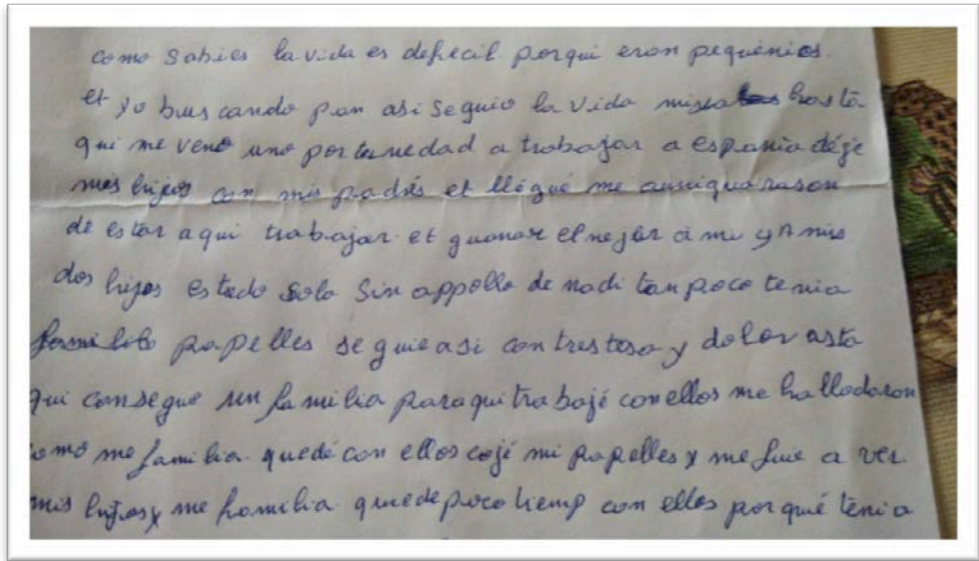 como sabies la vida es defecil porqui eron pequenios.
et yo buscando pan asi seguio la vida hasta
qui me veno uno portunedad a trabajar a espania déje
mis hijos con mis padrés et llégué me
de estar aqui trabajar et guanar elmejor a mi y A mis
dos hijos estado solo sin appollo de nadi tanpoco tenia
papelles seguie asi con trestesa y dolor asta
qui consegue un familia paraqui trabajé con ellos me hallodaron
como me familia. quedé con ellos cojé mi papelles y me fuie a ver
mis hijos y me familia. quede poco tiemp con ellos porqué tenia